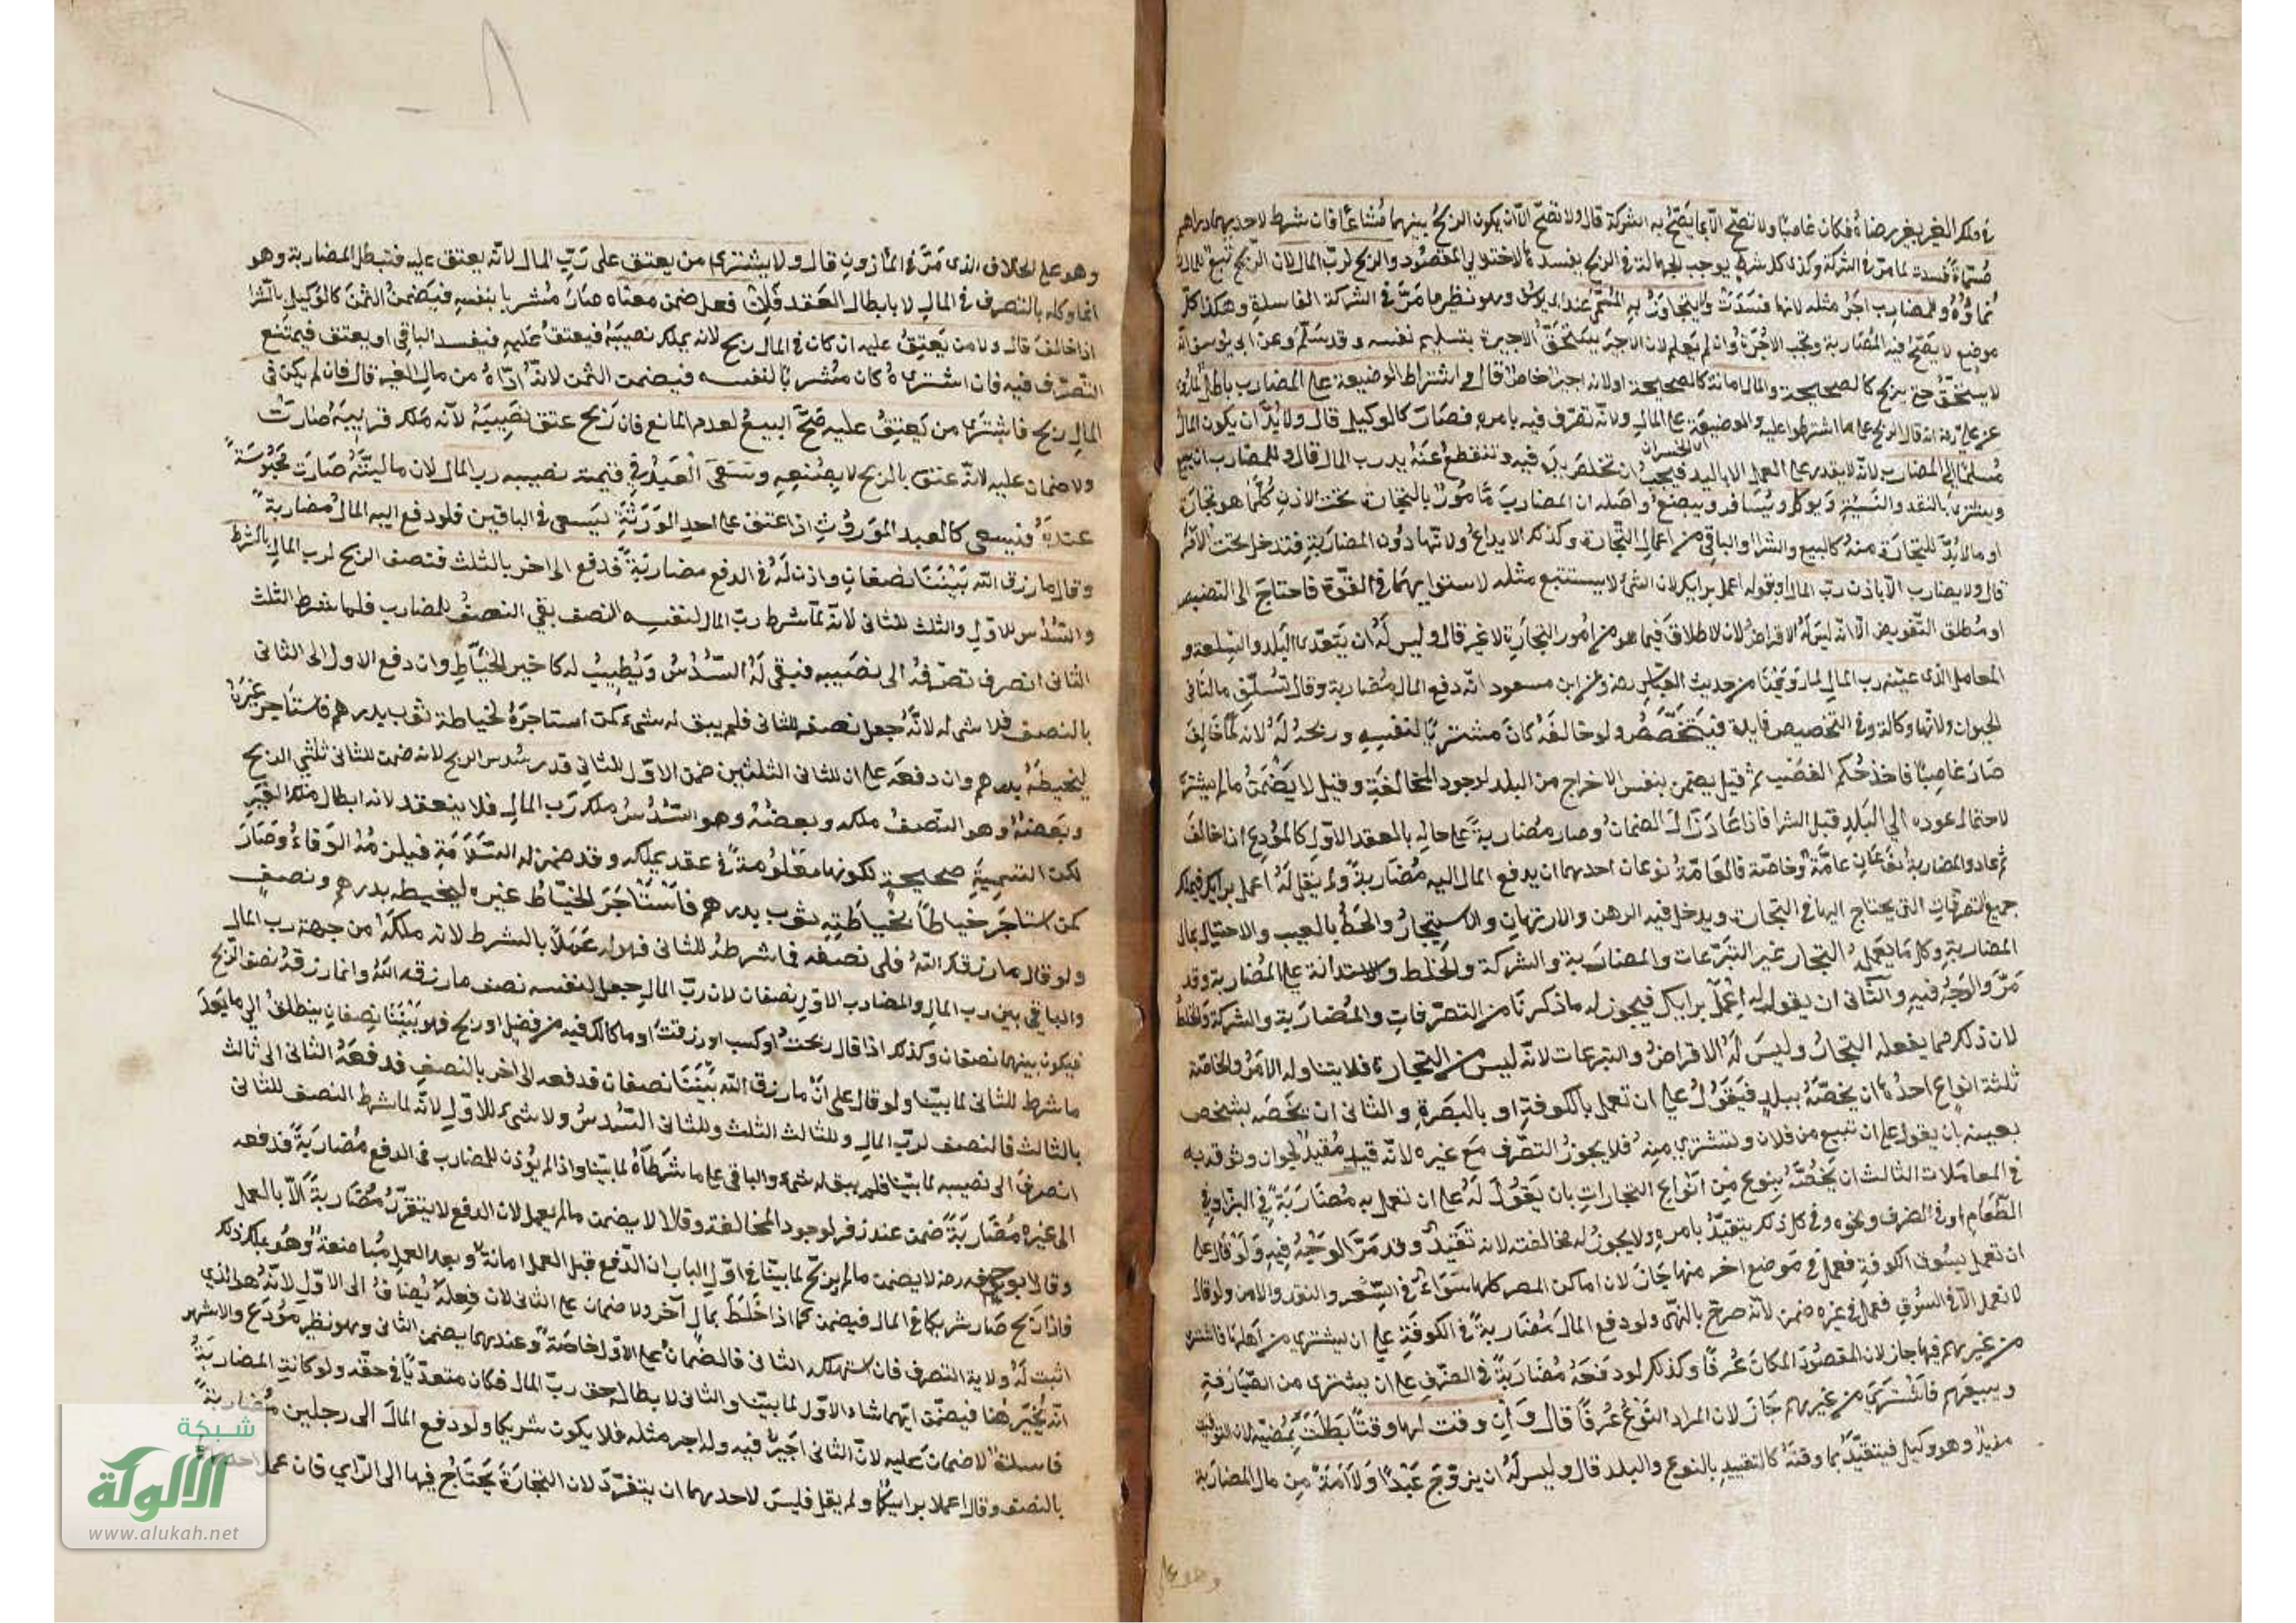 في ملك الغير بغير رضاه فكان غاصبا ولا تصح الا بما يصح به الشركة قال ولا تصح الا ان يكون الربح بينهما مشاعا فان شرط لاحدهما دراهم
مسماة فسدت لما مر في الشركة وكذى كل شرط يوجب الجهالة في الربح يفسدها لاختلال المقصود والربح لرب المال لان الربح تبع للمال لانه
نماؤه وللمضارب اجر مثله لانها فسدت ولا يتجاوز به المسمى عند ابي يوسف وهو نظير ما مر في الشركة الفاسدة وهكذا كل
موضع لا يصح فيه المضاربة وتجب الاجرة وان لم يعمل لان الاجير يستحق الاجرة بتسليم نفسه وقد سلم وعن ابي يوسف انه
لا يستحق حتى يربح كالصحيحة والمال امانة كالصحيحة اولانه اجير خاص قال واشتراط الوضيعة على المضارب باطل لما روي
عن علي رضه انه قال الربح على ما اشترطوا عليه والوضيعة على المال ولانه تصرف فيه بامره فصار كالوكيل قال ولا بد ان يكون المال
اي الخسران
مسلما الى المضارب لانه لا يقدر على العمل الا باليد فيجب ان تخلص يده فيه وتنقطع عنه يد رب المال قال وللمضارب ان يبيع
ويشتري بالنقد والنسيئة ويوكل ويسافر ويبضع واصله ان المضارب مأمور بالتجارة فيدخل تحت الاذن كلما هو تجارة
او ما لا بد للتجارة منه كالبيع والشرا والباقي من اعمال التجارة وكذلك الايداع ولانها دون المضاربة فتدخل تحت الامر
قال ولا يضارب الا باذن رب المال او بقوله اعمل برايك لان الشئ لا يستتبع مثله لاستوايهما في القوة فاحتاج الى التنصيص
او مطلق التفويض الا انه ليس له الاقراض لان الاطلاق فيما هو من امور التجارة لا غير قال وليس له ان يتعدى البلد والسلعة و
المعامل الذي عينه رب المال لما روينا من حديث العباس رضه وعن ابن مسعود انه دفع المال مضاربة وقال لا تسلف مالنا في
الحيوان ولانها وكالة وفي التخصيص فايدة فيتخصص ولو خالفه كان مشتريا لنفسه وربحه له لانه لما خالف
صار غاصبا فاخذ حكم الغصب ثم قيل يضمن بنفس الاخراج من البلد لوجود المخالفة وقيل لا يضمن ما لم يشتر
لاحتمال عوده الى البلد قبل الشرا فاذا عاد زال الضمان وصار مضاربة على حاله بالعقد الاول كالمودع اذا خالف
ثم عاد والمضاربة نوعان عامة وخاصة فالعامة نوعان احدهما ان يدفع المال اليه مضاربة ولم يقل له اعمل برايك فيملك
جميع التصرفات التي يحتاج اليها في التجارة ويدخل فيه الرهن والارتهان والاستيجار والحط بالعيب والاحتيال بمال
المضاربة وكل ما يعمله التجار غير التبرعات والمضاربة والشركة والخلط والاستدانة على المضاربة وقد
مر الوجه فيه والثاني ان يقول له اعمل برايك فيجوز له ما ذكرنا من التصرفات والمضاربة والشركة والخلط
لان ذلك مما يفعله التجار وليس له الاقراض والتبرعات لانه ليس من التجارة فلا يتناوله الامر والخاصة
ثلثة انواع احدها ان يخصه ببلد فيقول على ان تعمل بالكوفة او بالبصرة والثاني ان يخصه بشخص
بعينه بان يقول على ان تبيع من فلان وتشتري منه فلا يجوز التصرف مع غيره لانه قيد مفيد لجواز وثوقه به
في المعاملات الثالث ان يخصه بنوع من انواع التجارات بان يقول له على ان تعمل به مضاربة في البز او في
الطعام او في الصرف ونحوه وفي كل ذلك يتقيد بامره ولا يجوز له مخالفته لانه تقيد وقد مر الوجه فيه ولو قال على
ان تعمل بسوق الكوفة فعمل في موضع اخر منها جاز لان اماكن المصر كلها سواء في السعر والنقد والامن ولو قال
لا تعمل الا في السوق فعمل في غيره ضمن لانه صرح بالنهي ولو دفع المال مضاربة في الكوفة على ان يشتري من اهلها فاشترى
من غيرهم فيها جاز لان المقصود المكان عرفا وكذلك لو دفعه مضاربة في الصرف على ان يشتري من الصيارفة
ويبيعهم فاشترى من غيرهم جاز لان المراد النوع عرفا قال وان وقت لها وقتا بطلت بمضيه لان التوقيت
مفيد وهو وكيل فيتقيد بما وقته كالتقييد بالنوع والبلد قال وليس له ان يزوج عبدا ولا امة من مال المضاربة
وهو على
وهو على الخلاف الذي مر في المأذون قال ولا يشتري من يعتق على رب المال لانه يعتق عليه فتبطل المضاربة وهو
انما وكله بالتصرف في المال لا بابطال العقد فلئن فعل ضمن معناه صار مشتريا بنفسه فيضمن الثمن كالوكيل بالشرا
اذا خالف قال ولا من يعتق عليه ان كان في المال ربح لانه يملك نصيبه فيعتق عليه فيفسد الباقي او يعتق فيمتنع
التصرف فيه فان اشتراه كان مشتريا لنفسه فيضمن الثمن لانه اداه من مال الغير قال فان لم يكن في
المال ربح فاشترى من يعتق عليه صح البيع لعدم المانع فان ربح عتق نصيبه لانه ملك قريبه صارت
ولا ضمان عليه لانه عتق بالربح لا بصنعه وتسعى العبد في قيمة نصيبه رب المال لان ماليته صارت محبوسة
عنده فيسعى كالعبد الموروث اذا عتق على احد الورثة يسعى في الباقين فلو دفع اليه المال مضاربة
وقال ما رزق الله بيننا نصفان واذن له في الدفع مضاربة فدفع الى اخر بالثلث فنصف الربح لرب المال بالشرط
والسدس للاول والثلث للثاني لانه لما شرط رب المال لنفسه النصف بقي النصف للمضارب فلما شرط الثلث
الثاني انصرف تصرفه الى نصيبه فيبقى له السدس ويطيب له كاجير الخياط وان دفع الاول الى الثاني
بالنصف فلا شئ له لانه جعل نصفه للثاني فلم يبق له شئ كمن استاجره لخياطة ثوب بدرهم فاستاجر غيره
ليخيطه بدرهم وان دفعه على ان للثاني الثلثين ضمن الاول للثاني قدر سدس الربح لانه ضمن للثاني ثلثي الربح
وبعضه وهو النصف ملكه وبعضه وهو السدس ملك رب المال فلا ينعقد لانه ابطال ملك الغير
لكن التسمية صحيحة لكونها معلومة في عقد يملكه وقد ضمن له السلامة فيلزمه الوفاء وصار
كمن استاجر خياطا لخياطة ثوب بدرهم فاستاجر الخياط غيره ليخيطه بدرهم ونصف
ولو قال ما رزقك الله فلي نصفه فما شرطه للثاني فهو له عملا بالشرط لانه ملكه من جهة رب المال
والباقي بين رب المال والمضارب الاول نصفان لان رب المال جعل لنفسه نصف ما رزقه الله وانما رزقه نصف الربح
فيكون بينهما نصفان وكذلك اذا قال ربحت او كسبت او رزقت او ما كان لك فيه من فضل او ربح فهو بيننا نصفان ينطلق الى ما بعد
ما شرط للثاني لما بينا ولو قال على ان ما رزق الله بيننا نصفان فدفعه الى اخر بالنصف فدفعه الثاني الى ثالث
بالثالث فالنصف لرب المال وللثالث الثلث وللثاني السدس ولا شئ للاول لانه لما شرط النصف للثاني
انصرف الى نصيبه لما بينا فلم يبق له شئ والباقي على ما شرطاه لما بينا واذا لم يؤذن للمضارب في الدفع مضاربة فدفعه
الى غيره مضاربة ضمن عند زفر لوجود المخالفة وقالا لا يضمن ما لم يعمل لان الدفع لا يتقرر مضاربة الا بالعمل
وقال ابو حنيفه رضه لا يضمن ما لم يربح لما بينا في اول الباب ان الدفع قبل العمل امانة وبعد العمل مباضعة وهو يملك ذلك
فاذا ربح صار شريكا في المال فيضمن كما اذا خلط بمال آخر ولا ضمان على الثاني لان فعله يضاف الى الاول لانه هو الذي
اثبت له ولاية التصرف فان استهلكه الثاني فالضمان على الاول خاصة وعندهما يضمن الثاني وهو نظير مودع والاشهر
انه يخير هنا فيضمن ايهما شاء الاول لما بينا والثاني لابطاله حق رب المال فكان متعديا في حقه ولو كانت المضاربة
فاسدة لا ضمان عليه لان الثاني اجير فيه وله اجر مثله فلا يكون شريكا ولو دفع المال الى رجلين مضاربة
بالنصف وقال اعملا برايكما ولم يقل فليس لاحدهما ان يتفرد لان التجارة يحتاج فيها الى الراي فان عمل احدهما
شبكة
الألوكة
www.alukah.net